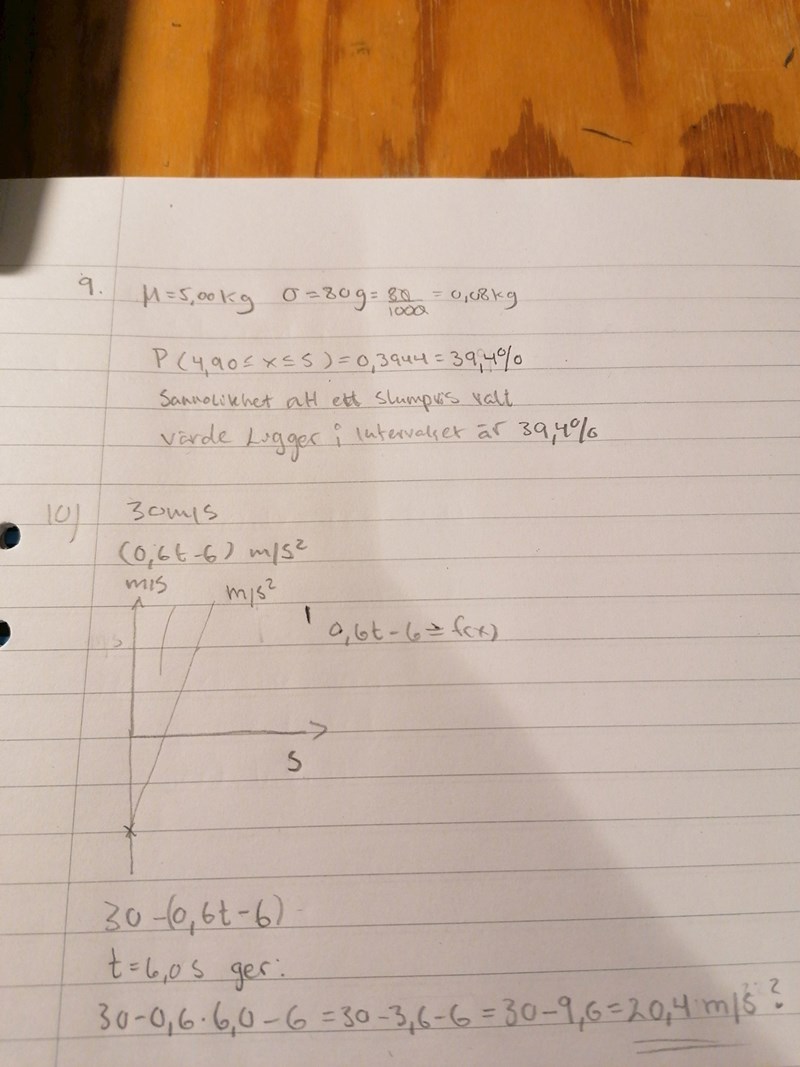 9. μ=5,00kg σ=80g=80/1000=0,08kg
P(4,90≤x≤5)=0,3944=39,4%
Sannolikhet att ett slumpvis valt
värde Lugger i intervallet är 39,4%
10) 30m/s
(0,6t-6) m/s²
m/s m/s²
0,6t-6=f(x)
S
30-(0,6t-6)
t=6,0s ger:
30-0,6·6,0-6=30-3,6-6=30-9,6=20,4 m/s?